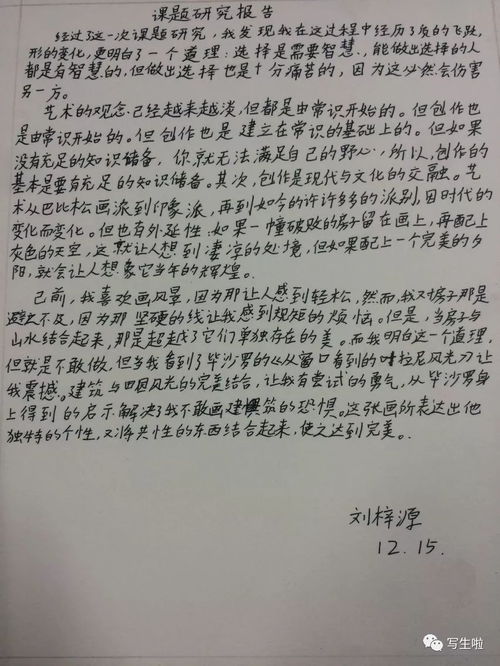 课题研究报告
经过了这一次课题研究，我发现我在这过程中经历了质的飞跃，
形的变化，更明白了一个道理：选择是需要智慧，能做出选择的人
都是有智慧的，但做出选择也是十分痛苦的，因为这必然会伤害
另一方。
艺术的观念已经越来越淡，但都是由常识开始的。但创作也
是由常识开始的。但创作也是建立在常识的基础上的。但如果
没有充足的知识储备，你就无法满足自己的野心，所以，创作的
基本是要有充足的知识储备。其次，创作是现代与文化的交融。艺
术从巴比松画派到印象派，再到如今的许许多多的派别，因时代的
变化而变化。但也有外延性：如果一幢破败的房子留在画上，再配上
灰色的天空，这就让人想到凄凉的处境，但如果配上一个完美的夕
阳，就会让人想象它当年的辉煌。
己前，我喜欢画风景，因为那让人感到轻松，然而，我又房子那是
避之不及，因为那坚硬的线让我感到规矩的烦恼。但是，当房子与
山水结合起来，那是超越了它们单独存在的美。而我明白这一个道理，
但就是不敢做，但当我看到了毕沙罗的《从窗口看到的 拉尼风光》让
我震撼。建筑与田园风光的完美结合，让我有尝试的勇气，从毕沙罗身
上得到的启示解决了我不敢画建筑的恐惧。这张画所表达出他
独特的个性，又将共性的东西结合起来，使之达到完美。
刘梓源
12.15.
写生啦